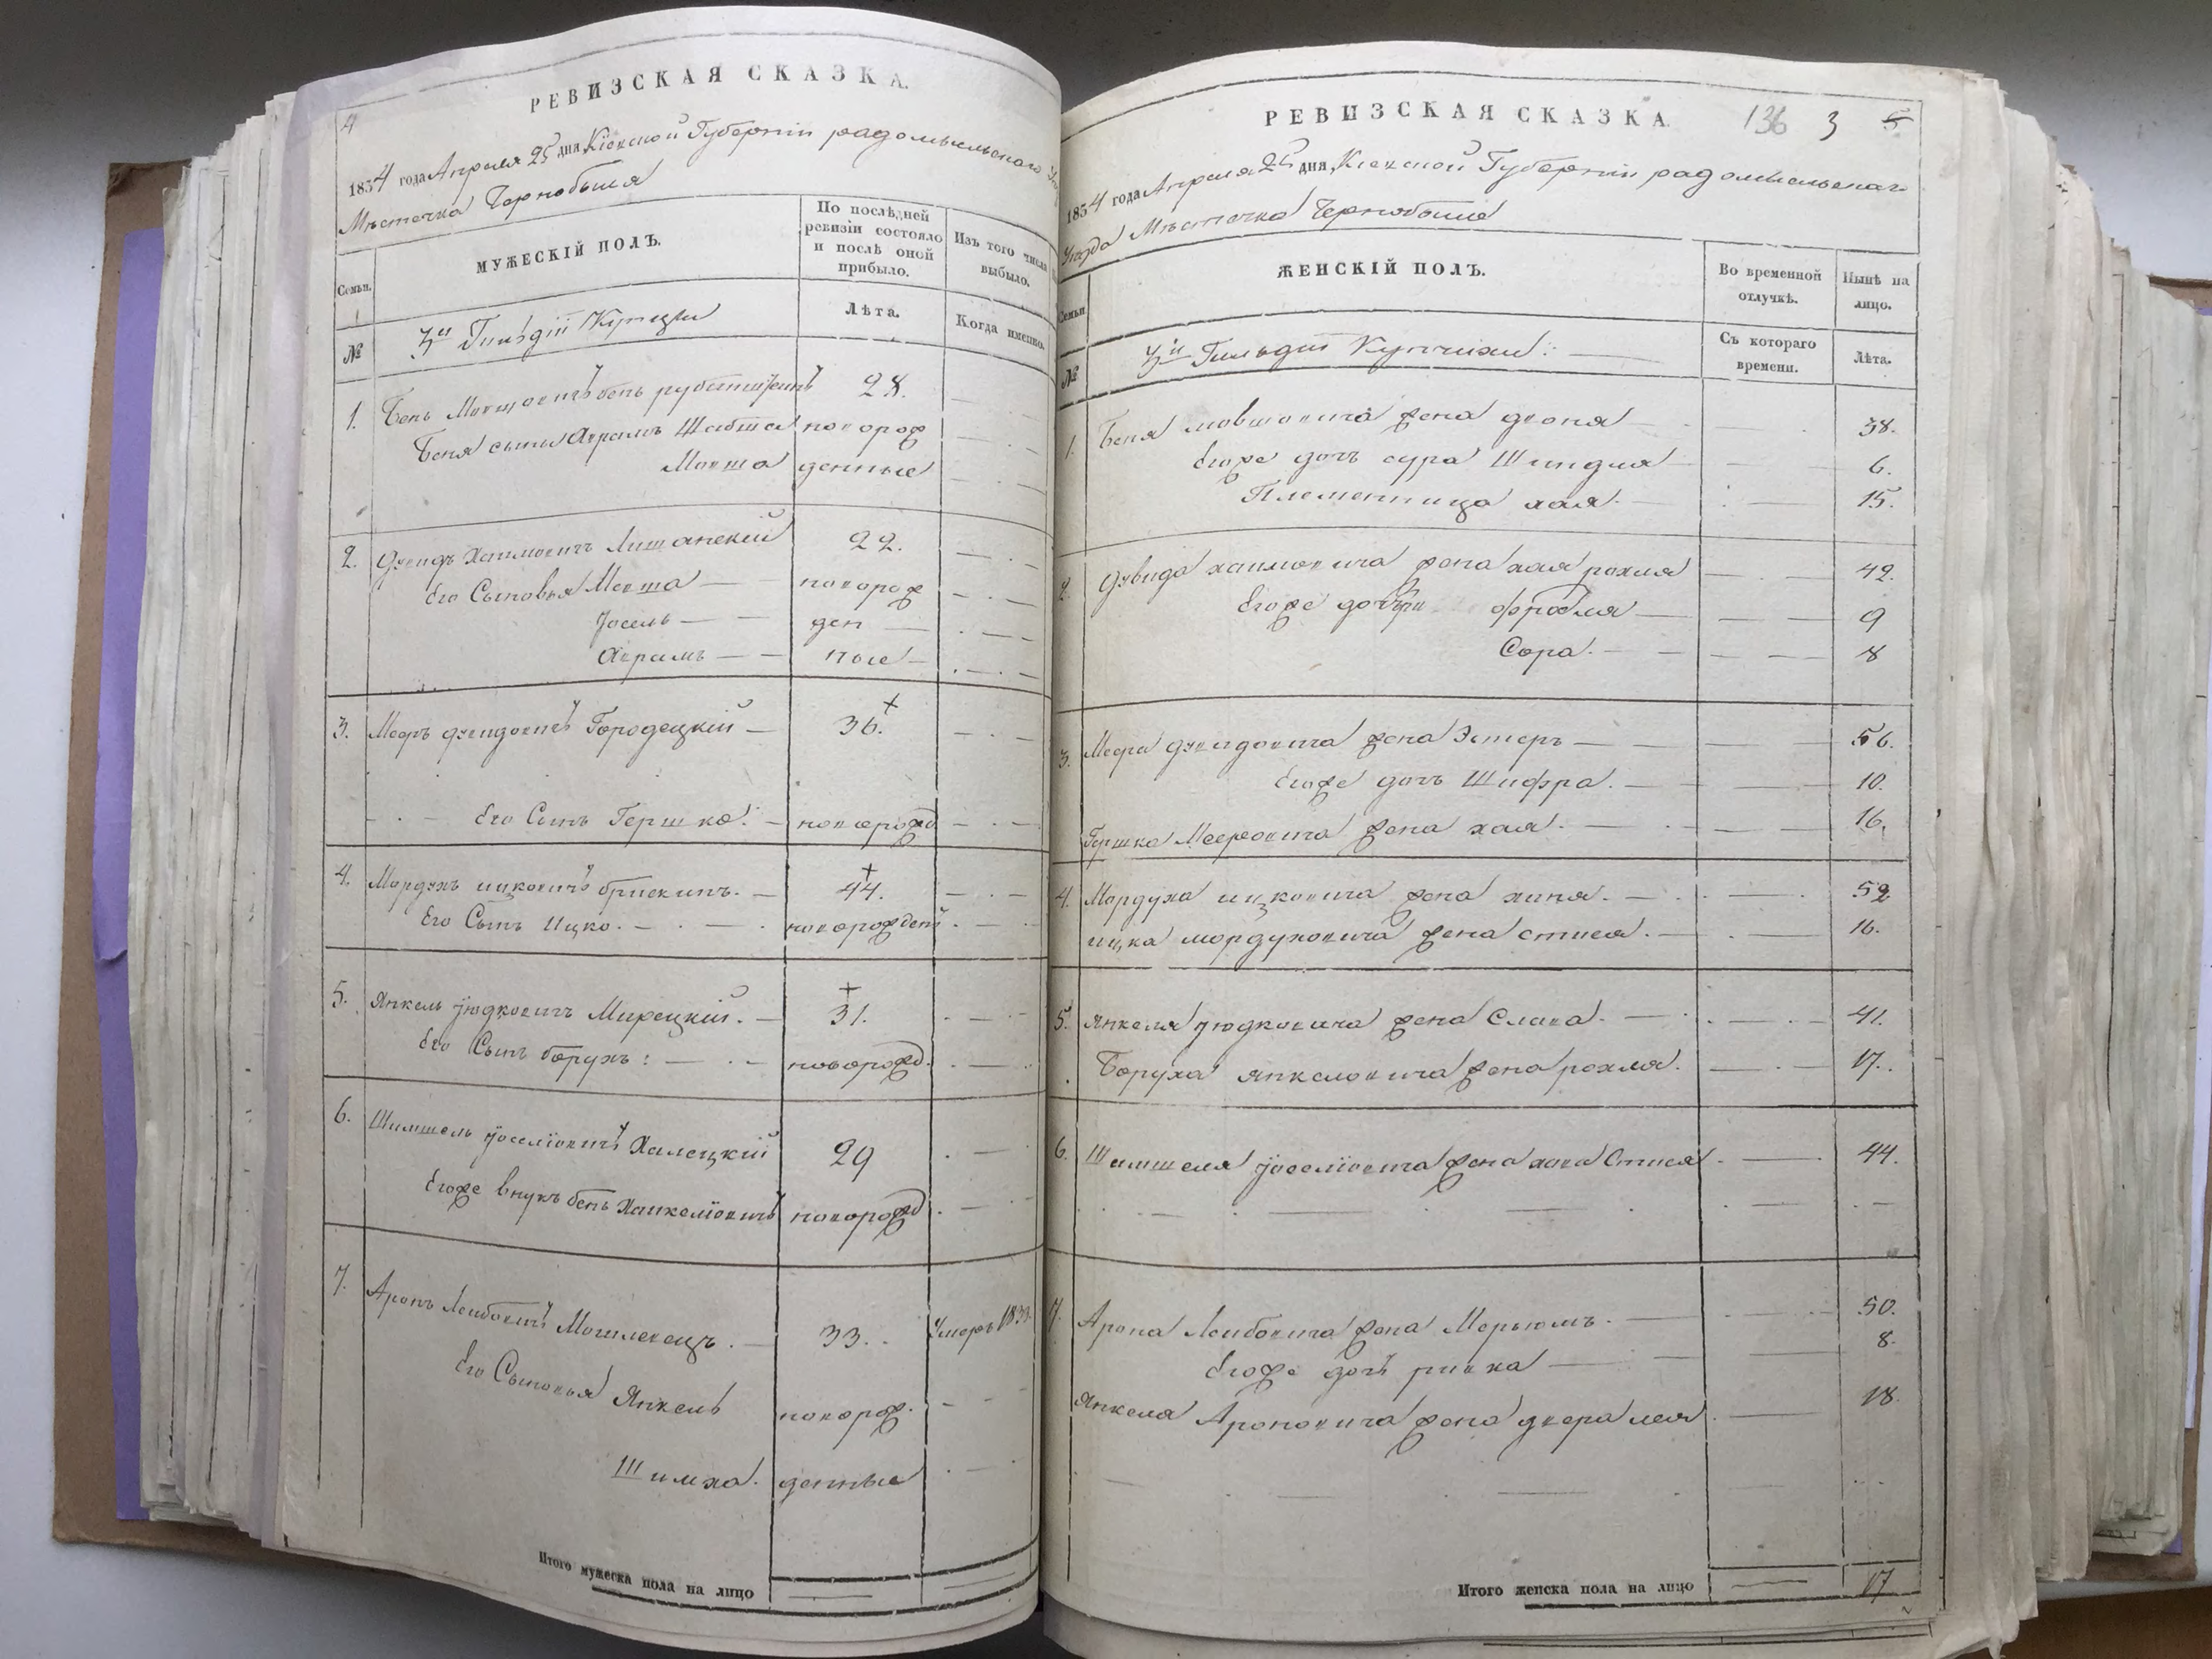 4
РЕВИЗСКАЯ СКАЗКА.
1834 года Апреля 25 дня, Кіевской Губерніи радомысльскаго
Мѣстечка Чернобыля
Семьи.
МУЖЕСКІЙ ПОЛЪ.
По послѣдней ревизіи состояло и послѣ оной прибыло.
Изъ того числа выбыло.
№
3й Гильдіи Купцы
Лѣта.
Когда именно.
1. Бень Мовшовичъ бень 28.
Беня сыны Аврамъ Шабша новорож
Мовша денные
2. Дувидъ Хаимовичъ Лишанскій 22.
Его Сыновья Мовша новорож
Іосель ден
Аврамъ ные
3. Мееръ Дувидовичъ Городецкій 36.
Его Сынъ Гершко. новорожд
4. Мордухъ ицковичъ брискинъ. 44.
Его Сынъ Ицко. новорожден
5. Янкель Іюдковичъ Мирецкій. 31.
Его Сынъ борухъ: новорожд.
6. Шимшель Іоселіовичъ Халецкій 29
Егоже внукъ бень Хаикеліовичъ новорожд
7. Аронъ Лейбовичъ Могилевецъ. 33. Умеръ 1833
Его Сыновья Янкель новорож.
Шимха. денные
Итого мужеска пола на лицо
РЕВИЗСКАЯ СКАЗКА.
136 3 5
1834 года Апреля 25 дня, Кіевской Губерніи радомысльскаго
Уезда Мѣстечка Чернобыля
Семьи
ЖЕНСКІЙ ПОЛЪ.
Во временной отлучкѣ.
Нынѣ на лицо.
№
3й Гильдіи Купчихи:
Съ котораго времени.
Лѣта.
1. Беня мовшовича жена двоня 38.
Егоже дочъ сура Шиндля 6.
Племенница хая. 15.
2. Дувида хаимовича жена хая рохля 42.
Егоже дочери фрадля 9
Сора. 8
3. Меера дувидовича жена Эстеръ 56.
Егоже дочъ Шифра. 10.
Гершка Мееровича жена хая. 16.
4. Мордуха ицковича жена хиня. 52
ицка мордуховича жена стися. 16.
5. Янкеля Іюдковича жена Слава. 41.
Боруха янкелевича жена рохля. 17.
6. Шимшеля Іоселіовича жена хава Стися 44.
7. Арона Лейбовича жена Мерьюмъ. 50.
Егоже дочъ ривка 8.
Янкеля Ароновича жена двера лея 18.
Итого женска пола на лицо 17